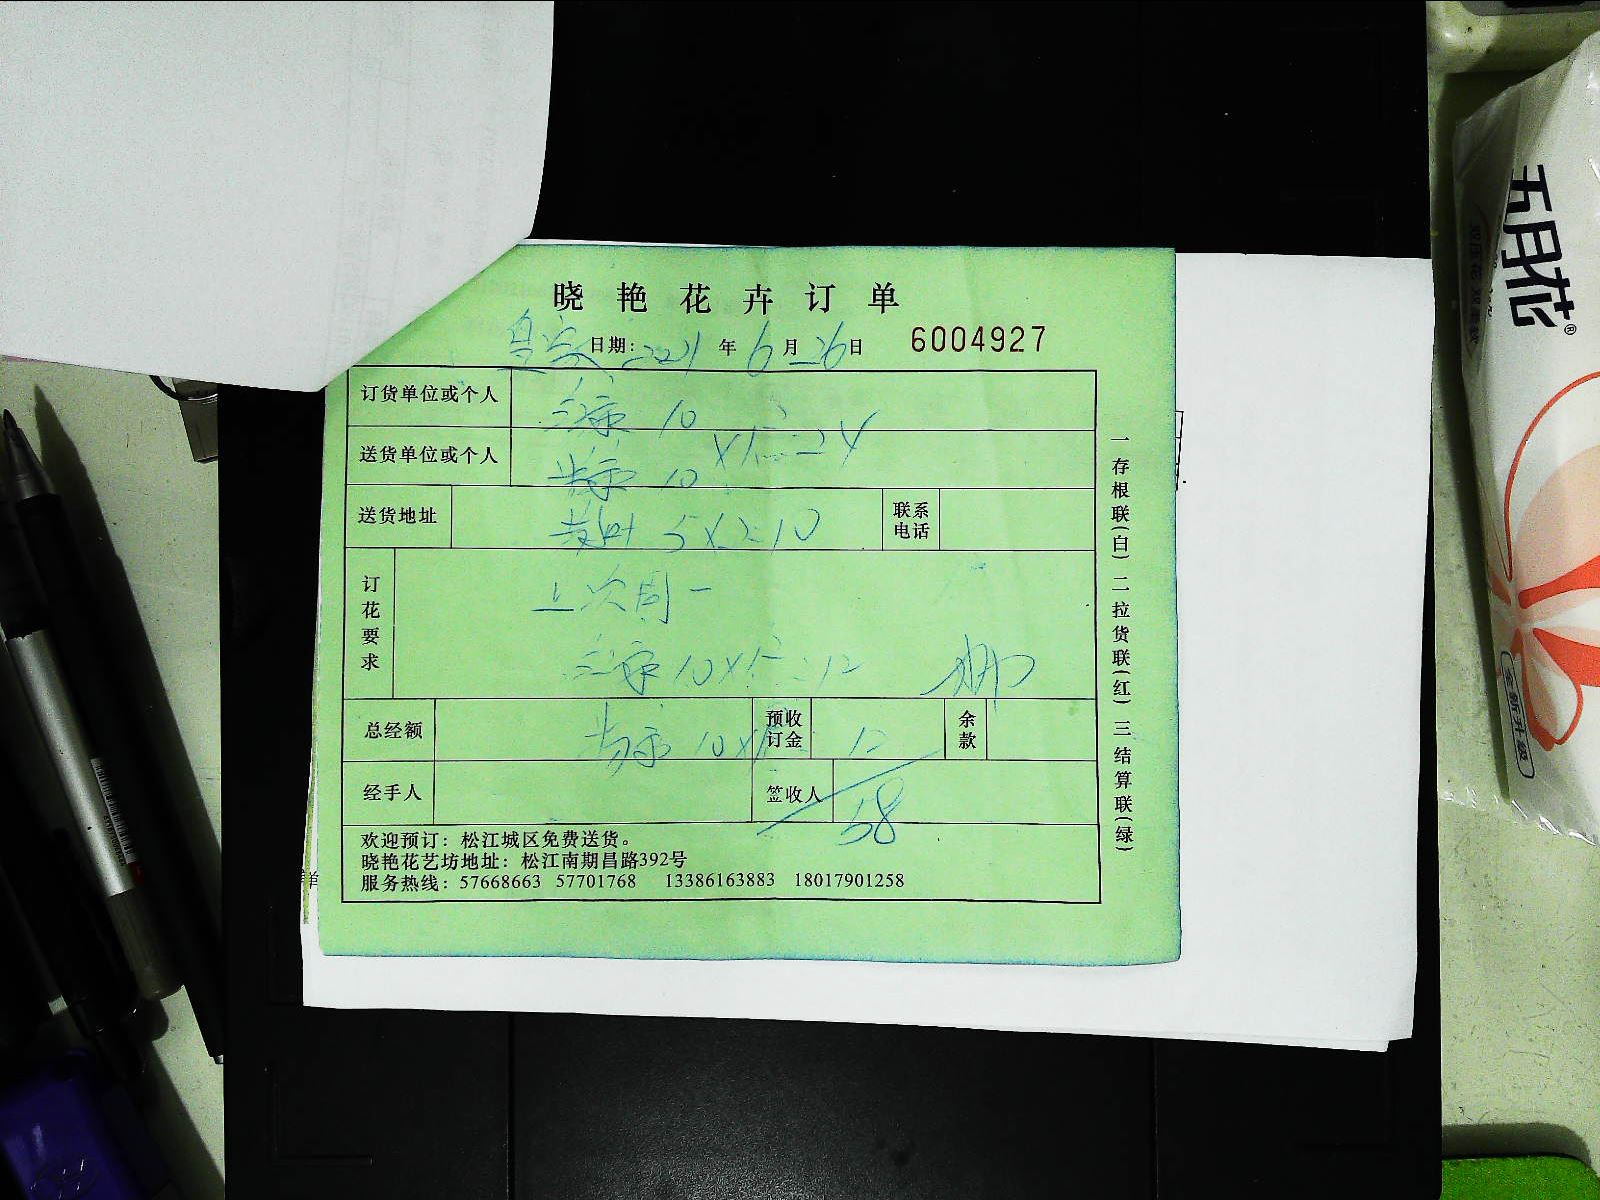 晓艳花卉订单
皇家 日期: 2021 年 6 月 26 日 6004927
订货单位或个人
10
送货单位或个人 24
10
送货地址 5×2=10 联系电话
订花要求
上次周一
10× 12
总经额 10× 预收订金 12 余款
经手人 签收人 58
欢迎预订：松江城区免费送货。
晓艳花艺坊地址：松江南期昌路392号
服务热线：57668663 57701768 13386163883 18017901258
一存根联(白) 二拉货联(红) 三结算联(绿)
五月花®
全新升级